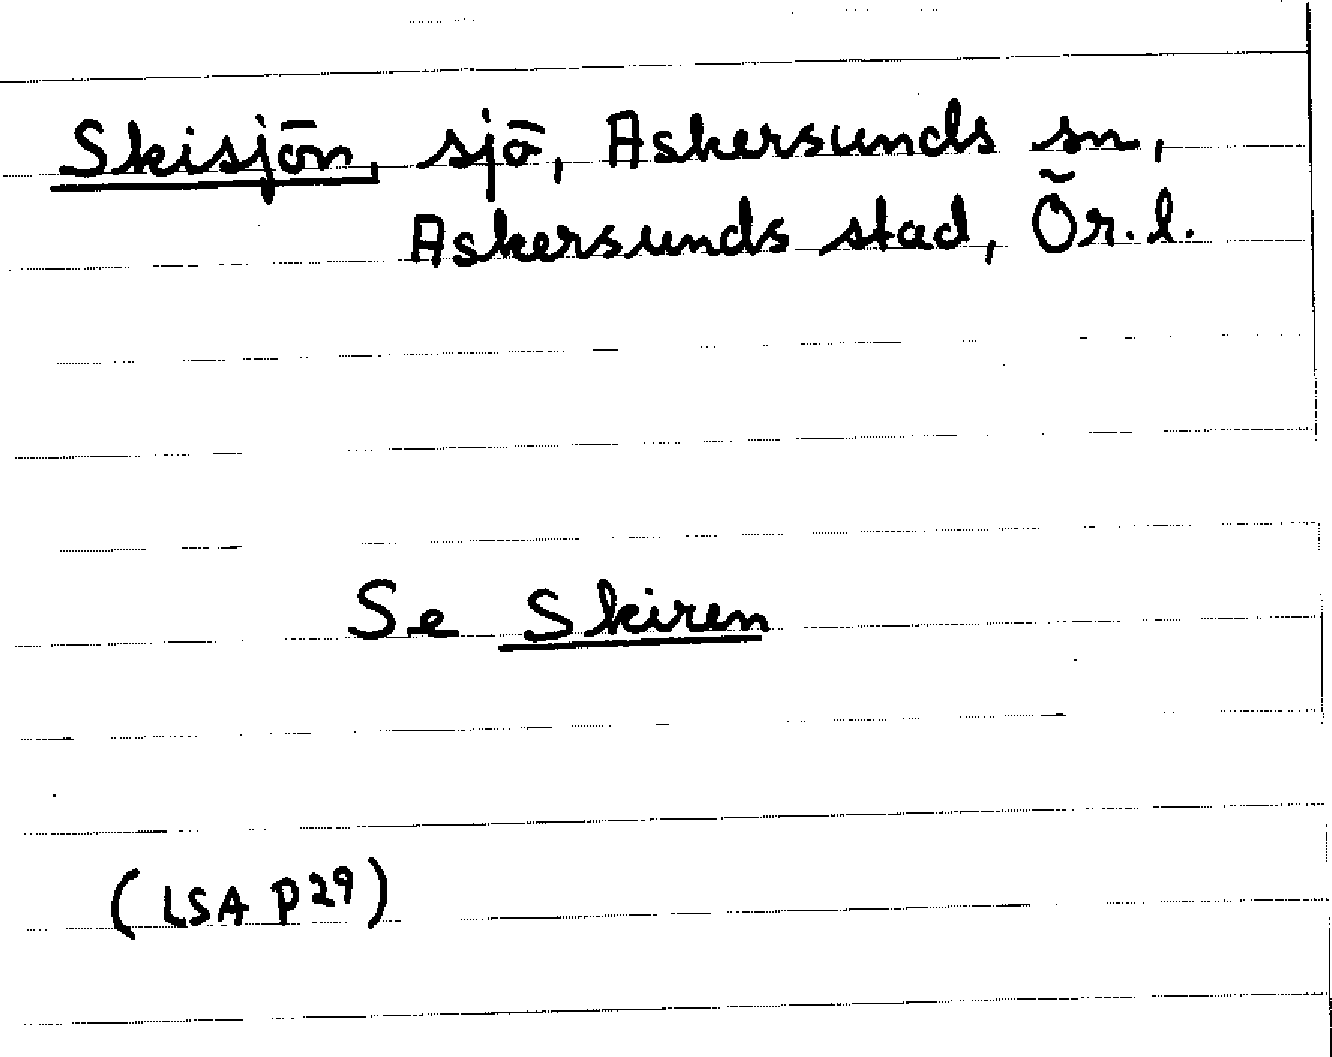 Skisjön, sjö, Askersunds sn,
Askersunds stad, Ör. l.
Se Skiren
(LSA P29)